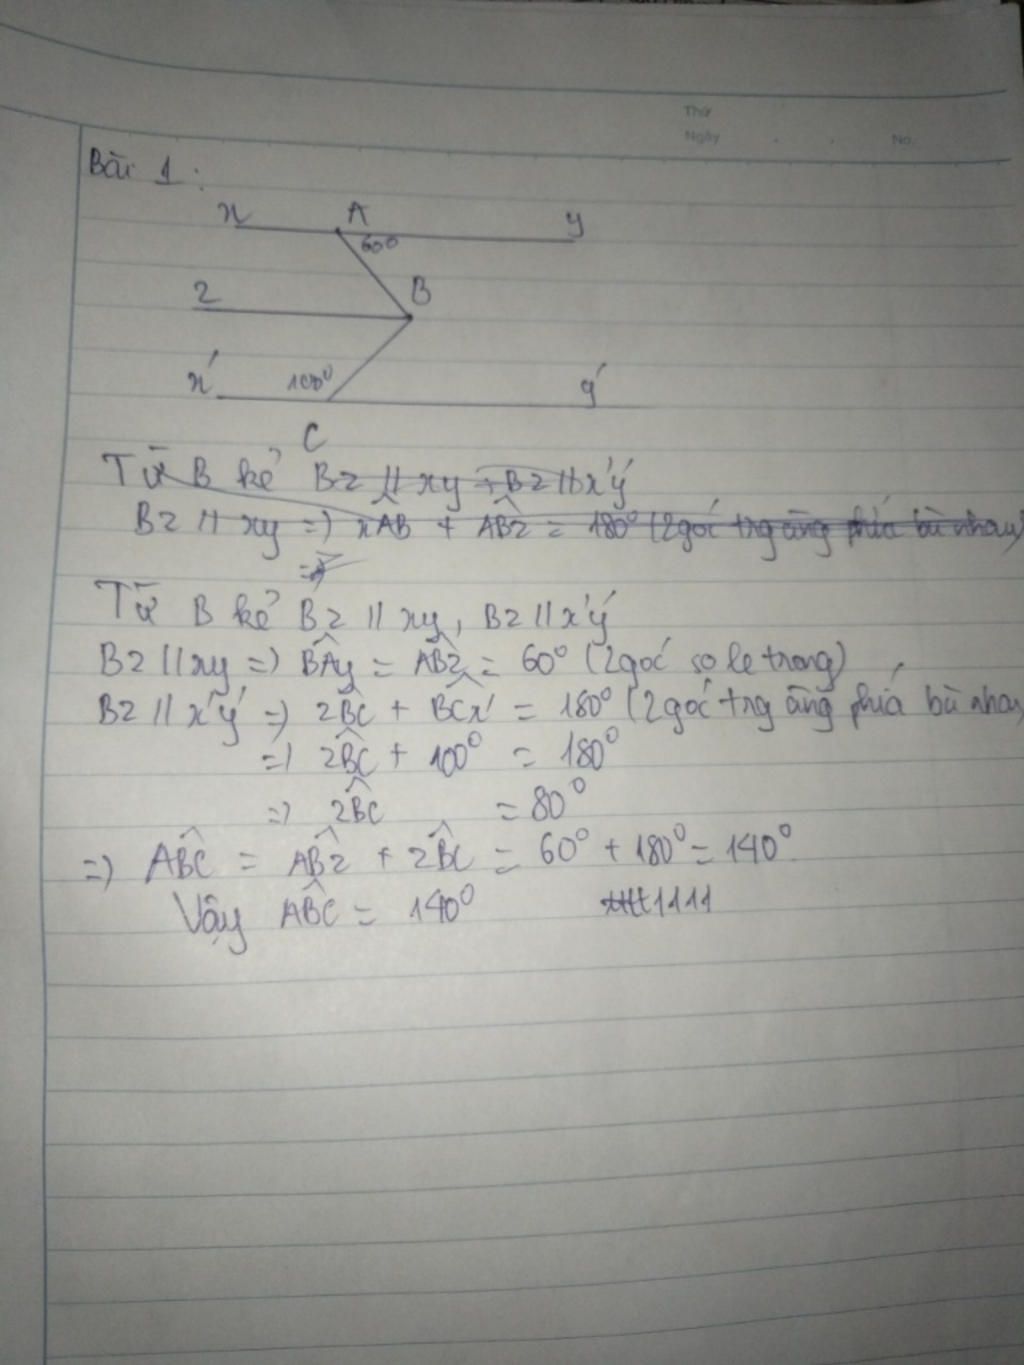 Thứ
Ngày No.
Bài 1:
x A y
60°
z B
x' 100° y'
C
Từ B kẻ Bz // xy + Bz // x'y'
Bz // xy => xAB + ABz = 180° (2 góc trg cùng phía bù nhau)
=>
Từ B kẻ Bz // xy, Bz // x'y'
Bz // xy => BAy = ABz = 60° (2 góc so le trong)
Bz // x'y' => zBC + BCx' = 180° (2 góc trg cùng phía bù nhau
=> zBC + 100° = 180°
=> zBC = 80°
=> ABC = ABz + zBC = 60° + 180° = 140°
Vậy ABC = 140°